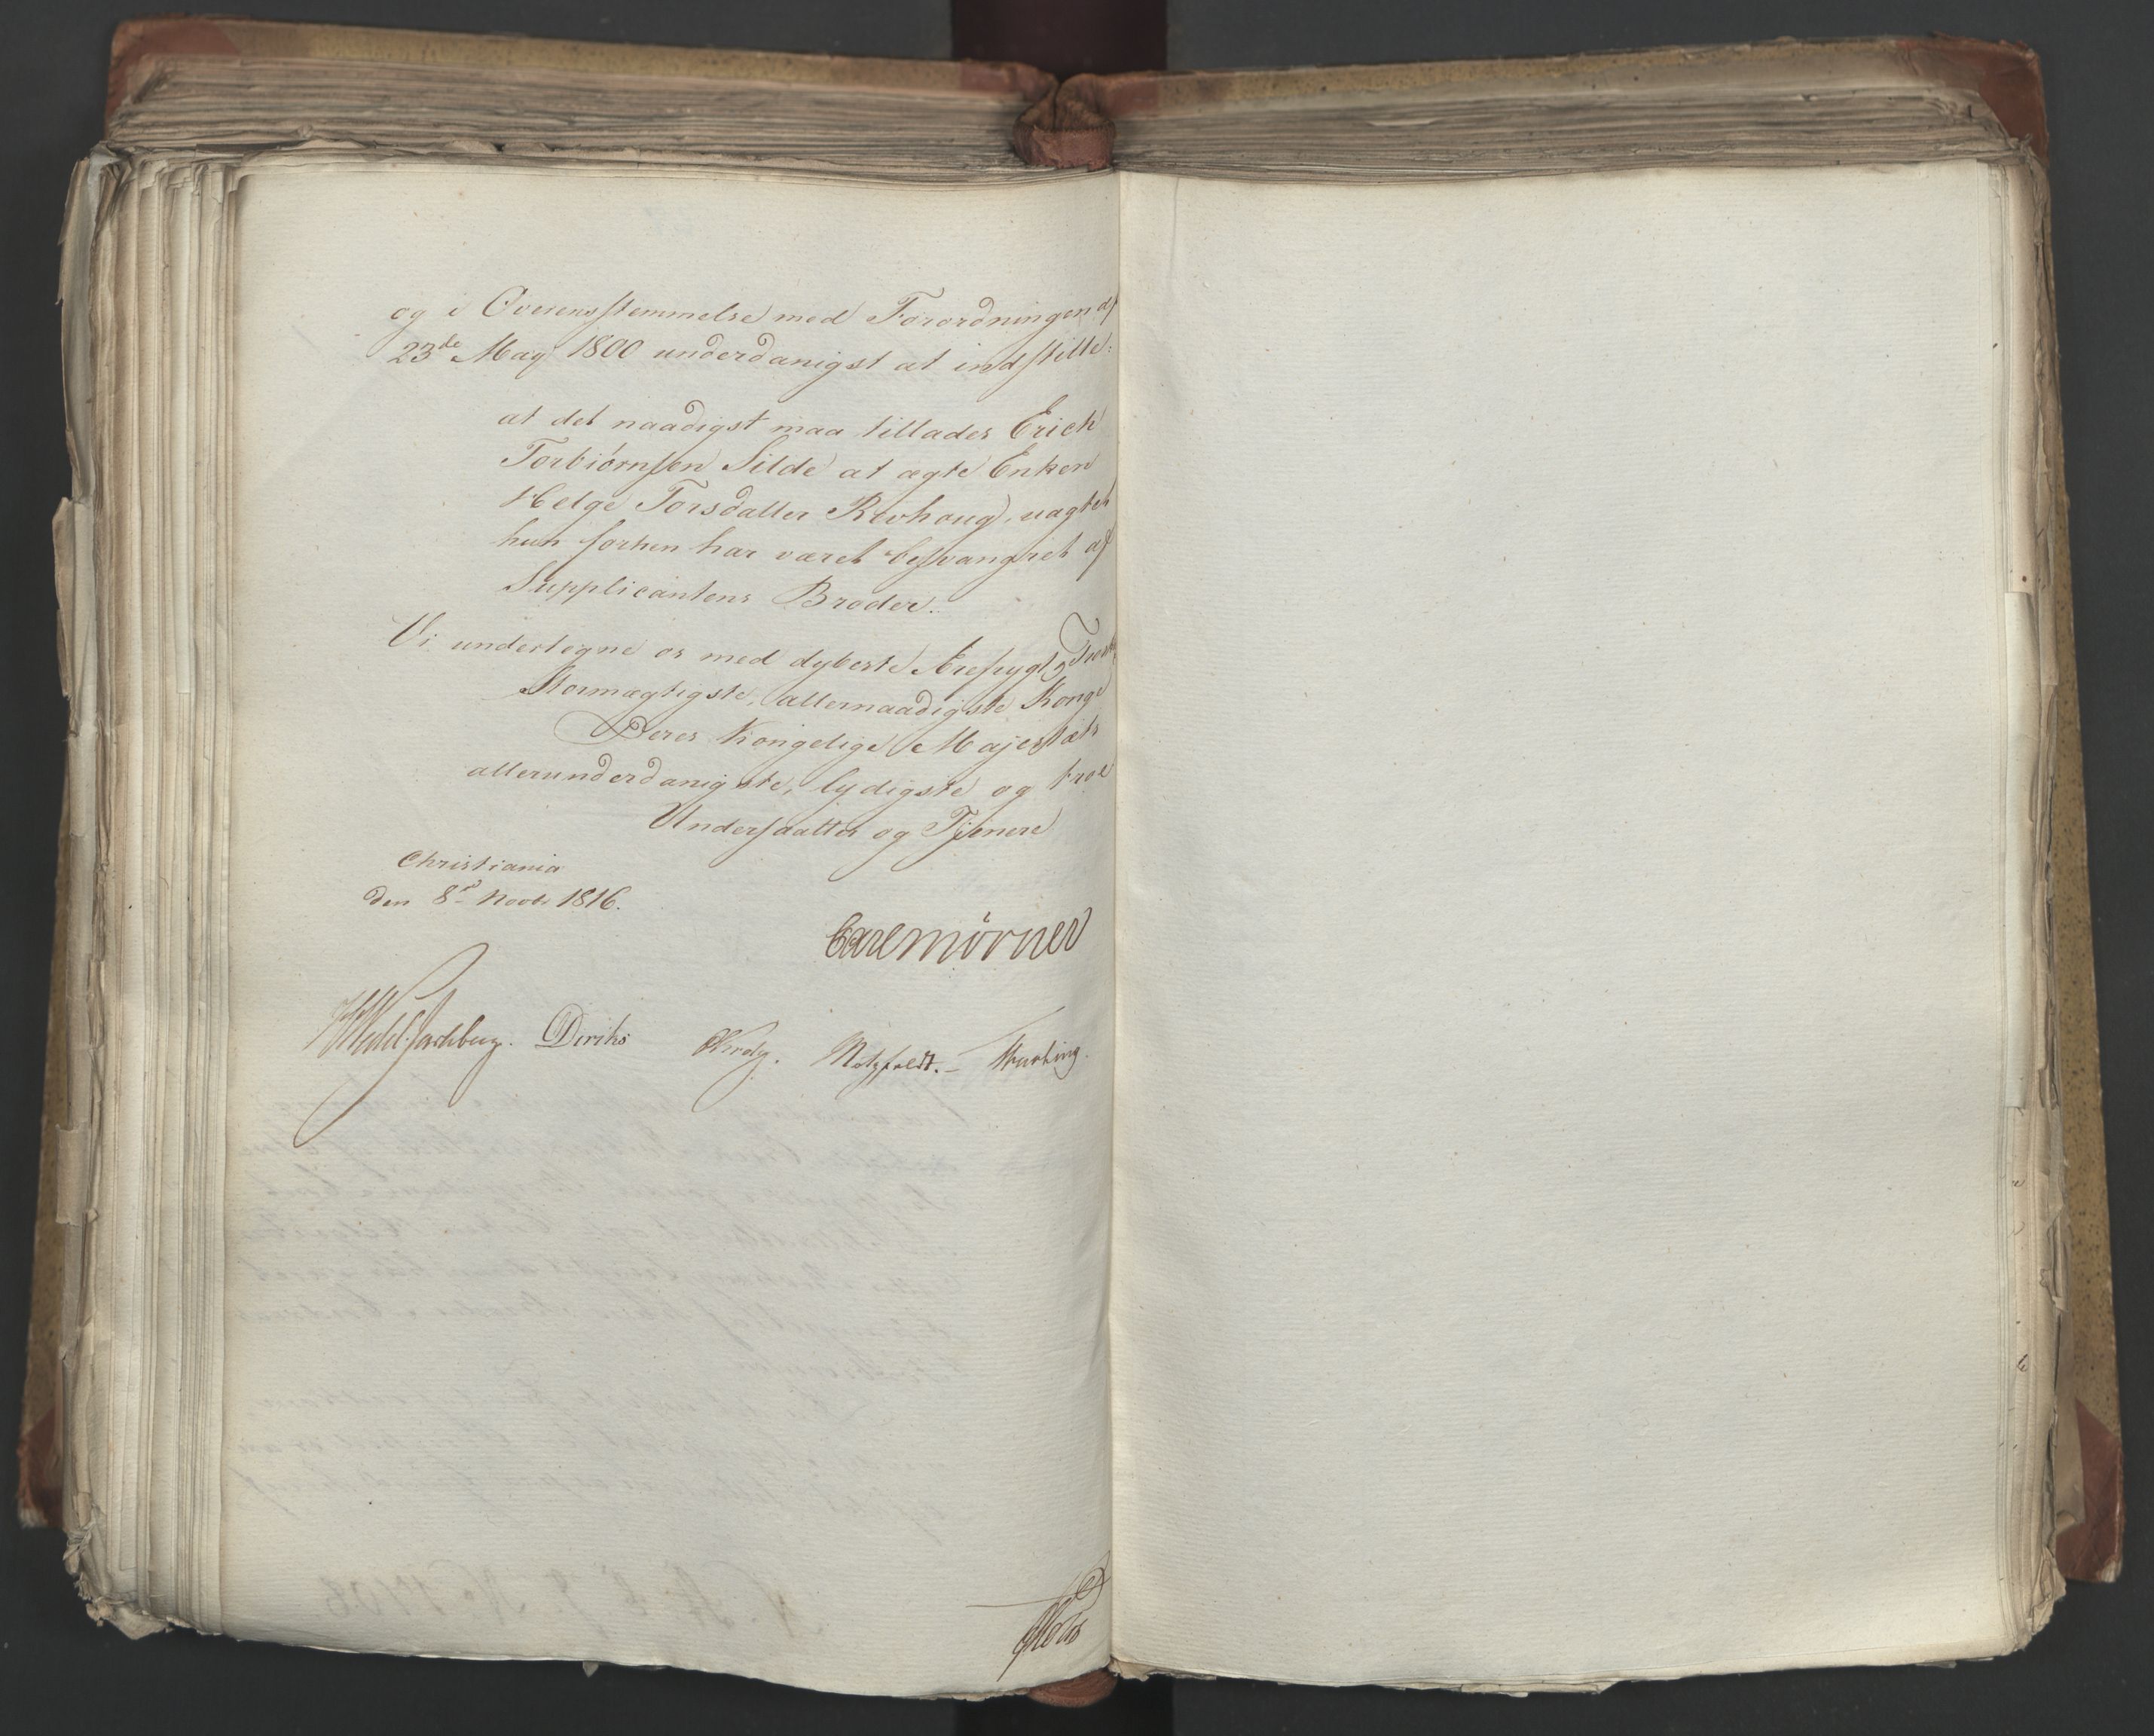 og i Overensstemmelse med Forordningen af
23de May 1800 underdanigst at indstille:
at det naadigst maa tillades Erich
Torbiørnsen Silde at ægte Enken
Helge Torsdatter Revhaug, uagtet
hun forhen har været besvangret af
Supplicantens Broder.
Vi undertegne os med dybeste Ærefrygt,
Stormægtigste, allernaadigste Konge
Deres Kongelige Majestæts
allerunderdanigste, lydigste og troe
Undersaatter og Tjenere
Christiania
den 8d Novbr 1816.
Carl Mörner
Wedel Jarlsberg. Diriks Krog. Motzfeldt. -